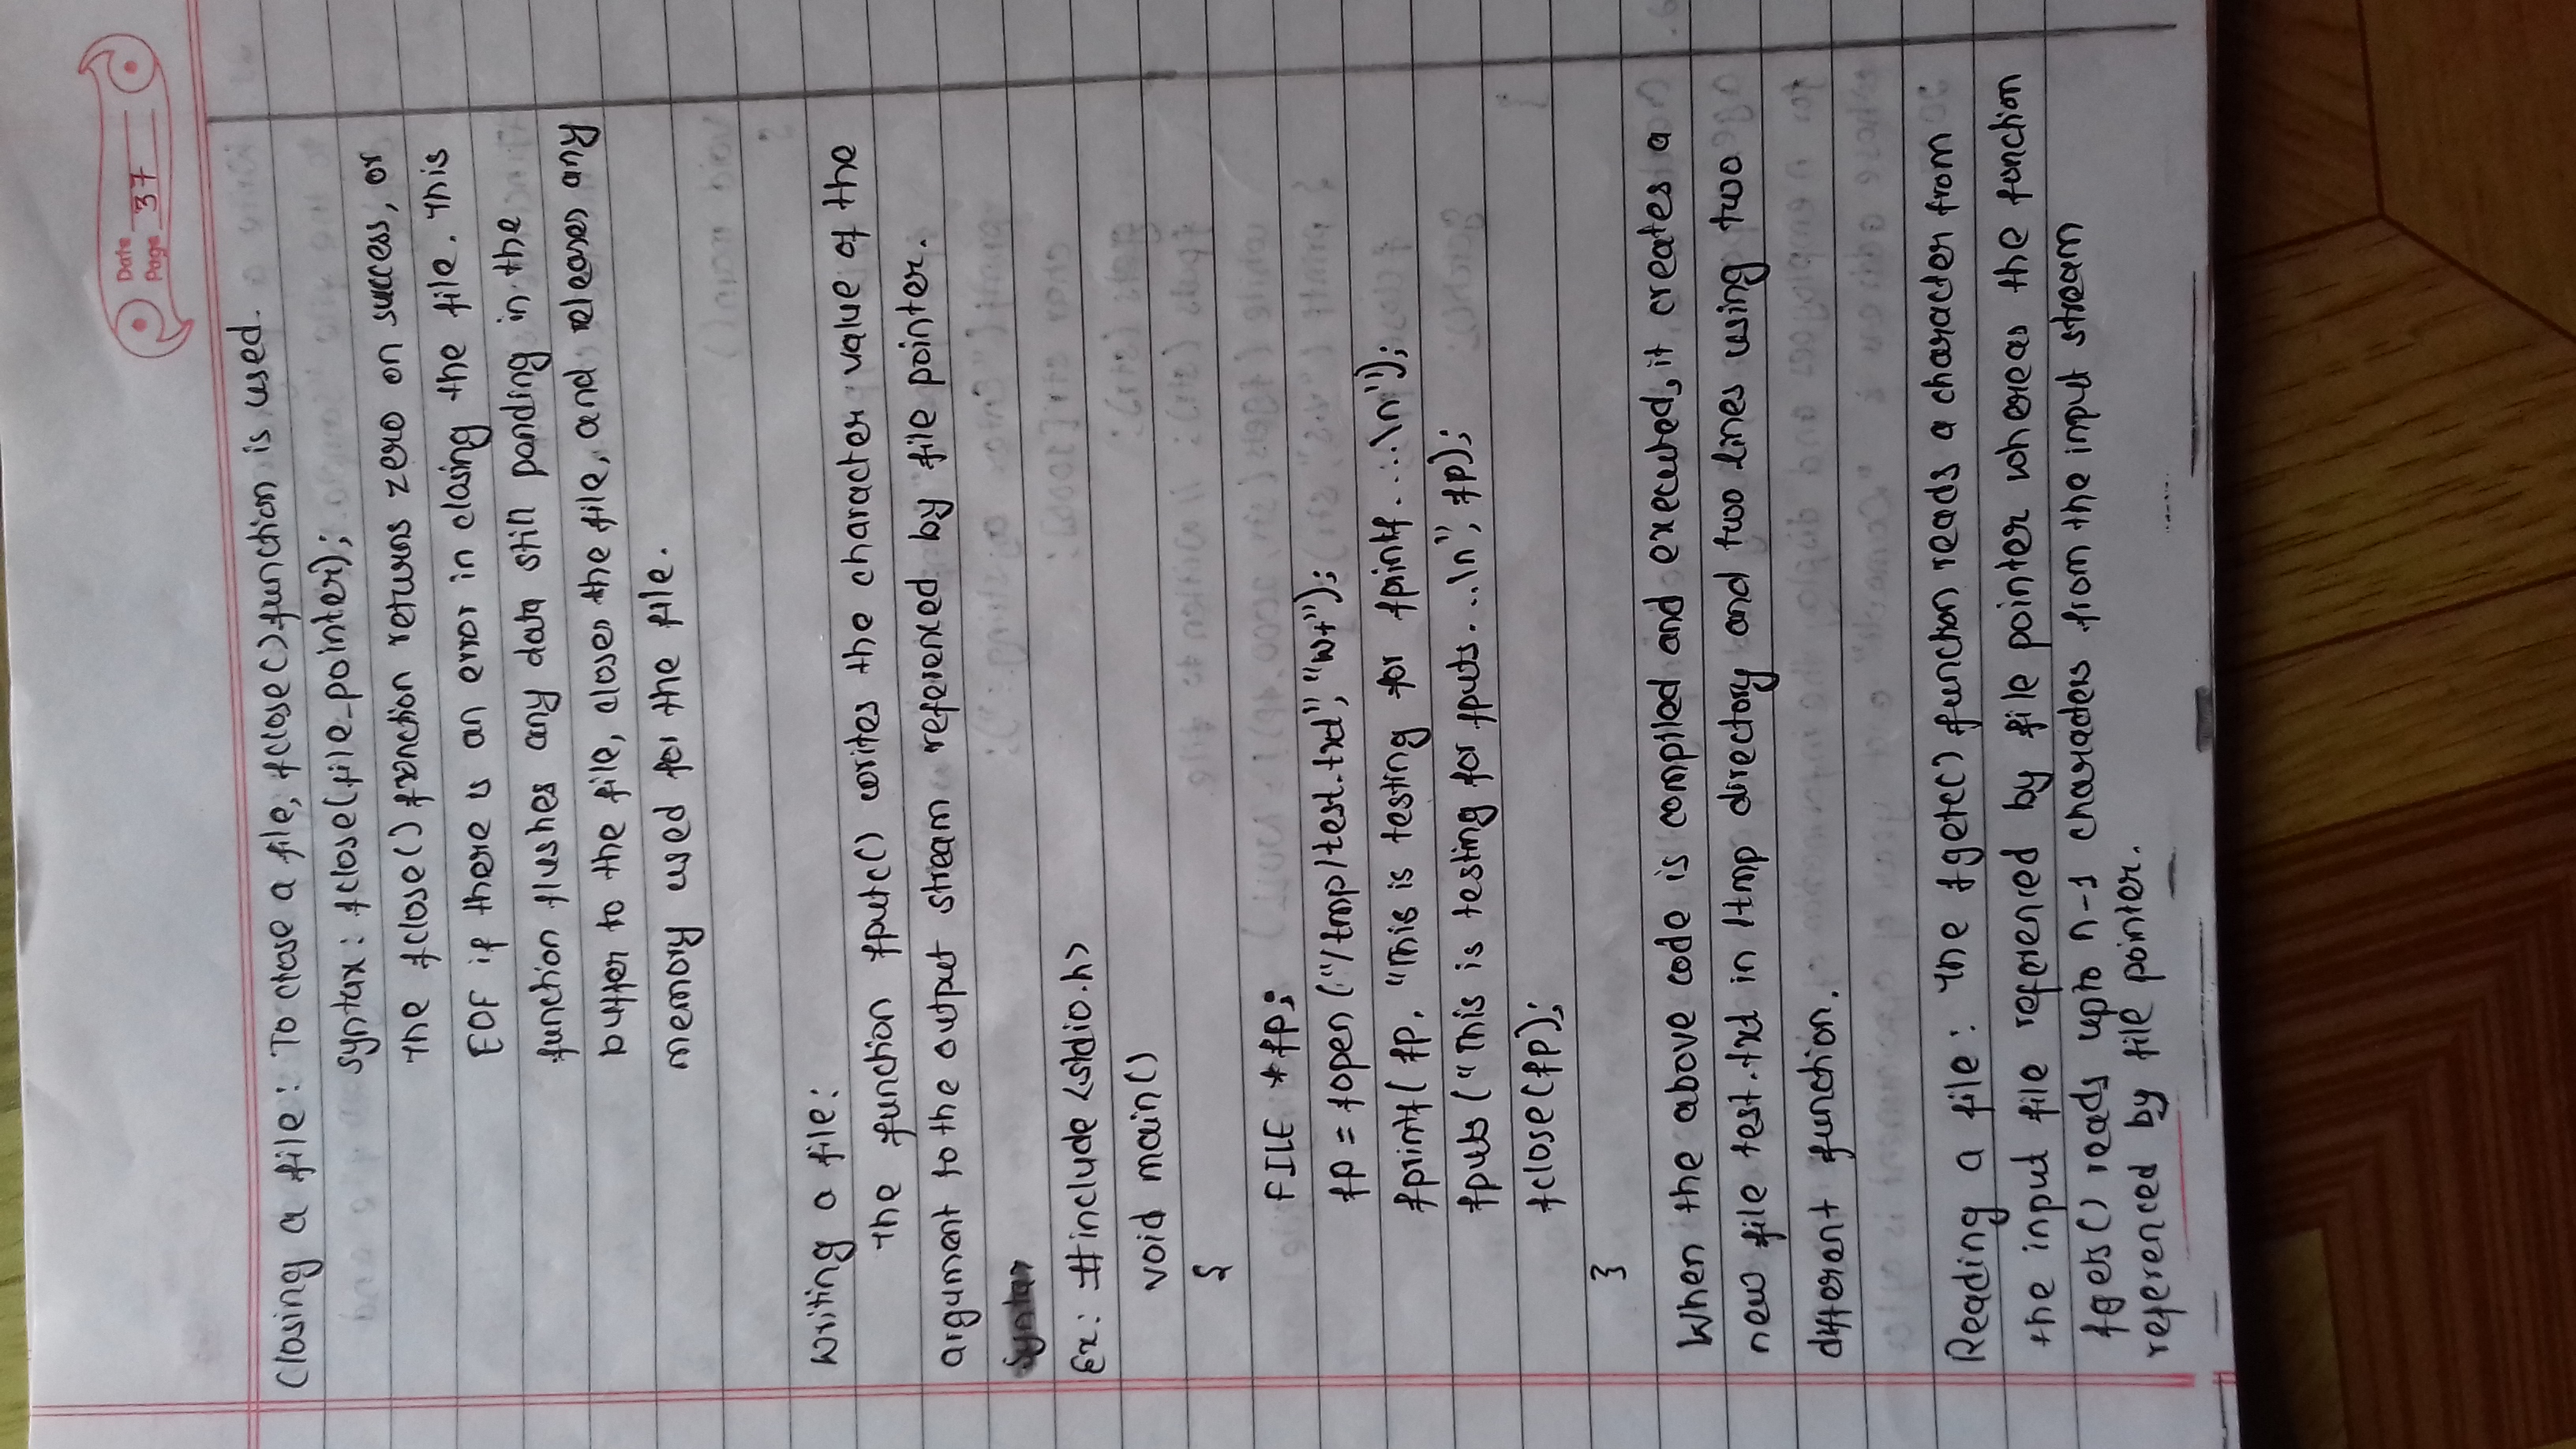 Date
Page 37
Closing a file: To close a file, fclose() function is used.
syntax: fclose(file_pointer);
The fclose() function returns zero on success, or
EOF if there is an error in closing the file. This
function flushes any data still panding in the
buffer to the file, closes the file, and releases any
memory used for the file.
Writing a file:
The function fputc() writes the character value of the
argument to the output stream referenced by file pointer.
Syntax
Ex: #include <stdio.h>
void main()
{
FILE *fp;
fp = fopen ("/tmp/test.txt", "w+");
fprintf( fp, "This is testing for fprintf.....\n");
fputs ("This is testing for fputs...\n", fp);
fclose(fp);
}
When the above code is compiled and executed, it creates a
new file test.txt in /tmp directory and two lines using two
different function.
Reading a file: The fgetc() function reads a character from
the input file referenced by file pointer whereas the function
fgets() reads upto n-1 characters from the input stream
referenced by file pointer.